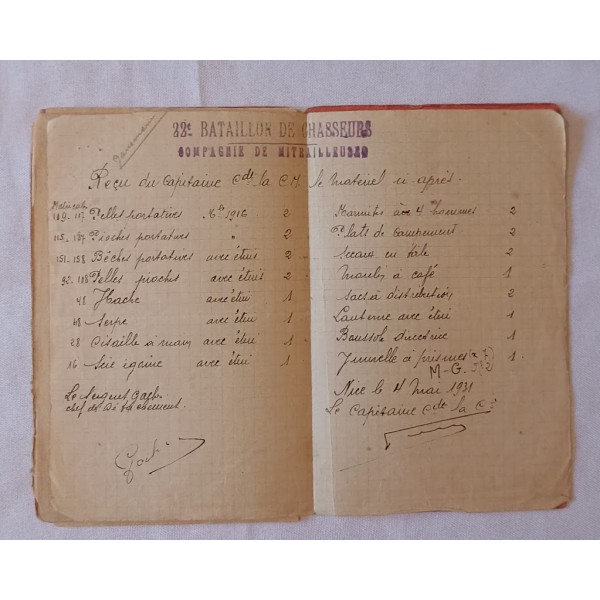 22e BATAILLON DE CHASSEURS
COMPAGNIE DE MITRAILLEUSES
Reçu du Capitaine Cdt la C.M. le matériel ci après.
Matricule
119. 117 Pelles portatives Mle 1916 2
115-137 Pioches portatives " 2
151.158 Bêches portatives avec étuis 2
92.108 Pelles pioches avec étuis 2
48 Hache avec étui 1
48 Serpe avec étui 1
28 Cisaille à main avec étui 1
16 Scie égoine avec étui 1
Le Sergent
chef de Détachement.
Marmites à 4 hommes 2
Plats de campement 2
Sceaux en toile 2
Moulin à café 1
Sacs à distribution 2
Lanterne avec étui 1
Boussole directrice 1
Jumelle à prismes 1
M-G.
Nice le 4 Mai 1931
Le Capitaine Cdt la Cie